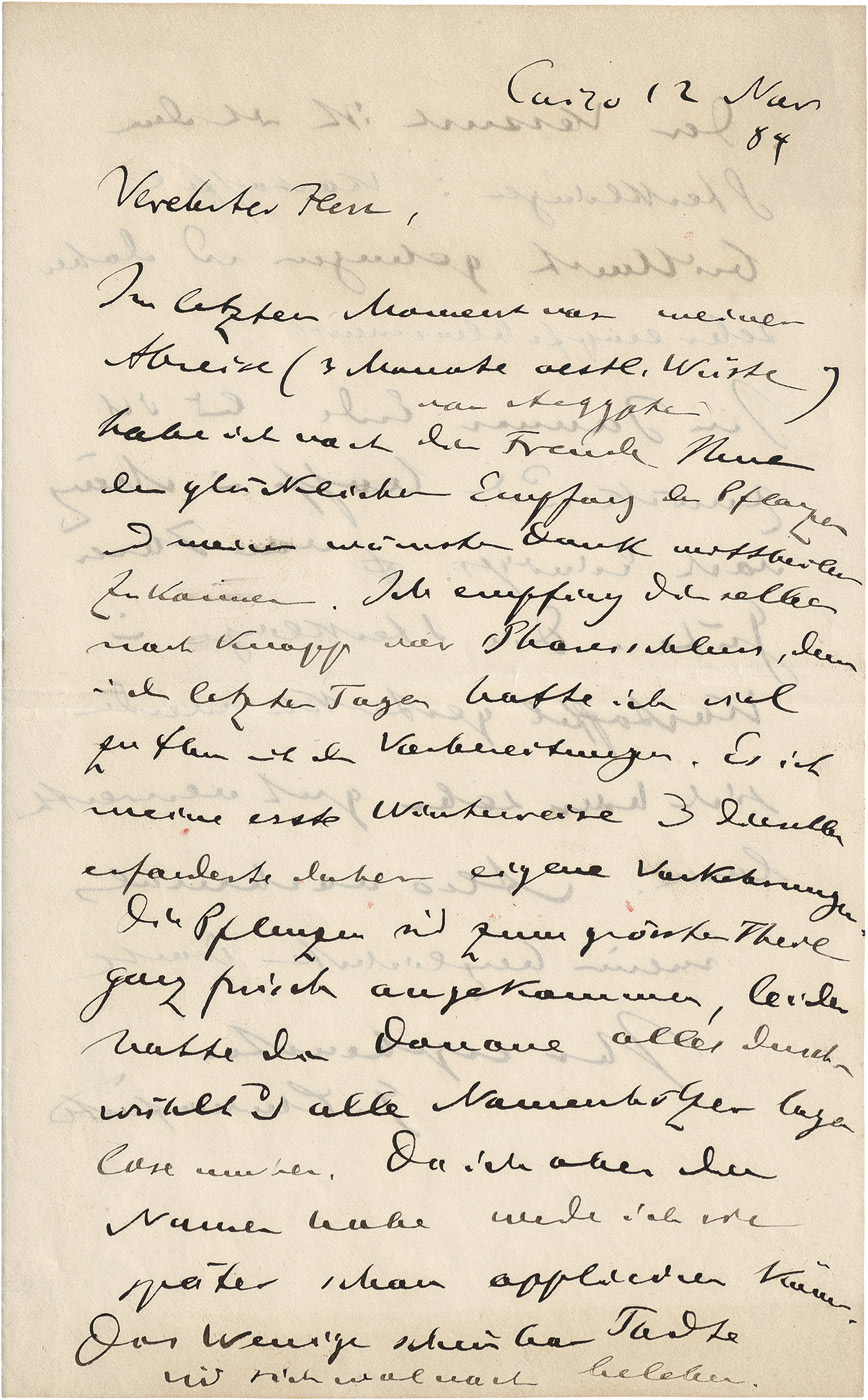 Cairo 12 Nov
84
Verehrter Herr,
Im letzten Moment vor meiner
Abreise (3 Monate oestl. Wüste
von Aegypten)
habe ich noch die Freude Ihnen
den glücklichen Empfang der Pflanzen
u meinen wärmsten Dank mittheilen
zu können. Ich empfing dieselben
noch knapp vor Thoresschluss, denn
in den letzten Tagen hatte ich viel
zu thun mit den Vorbereitungen. Es ist
meine erste Winterreise u dieselbe
erforderte daher eigene Vorkehrungen.
Die Pflanzen sind zum grössten Theile
ganz frisch angekommen, leider
hatte die Douane alles durch-
wühlt u alle Namenhölzer lagen
lose umher. Da ich aber die
Namen habe werde ich sie
später schon appliciren können.
Das Wenige scheinbar Todte
wird sich wol noch beleben.